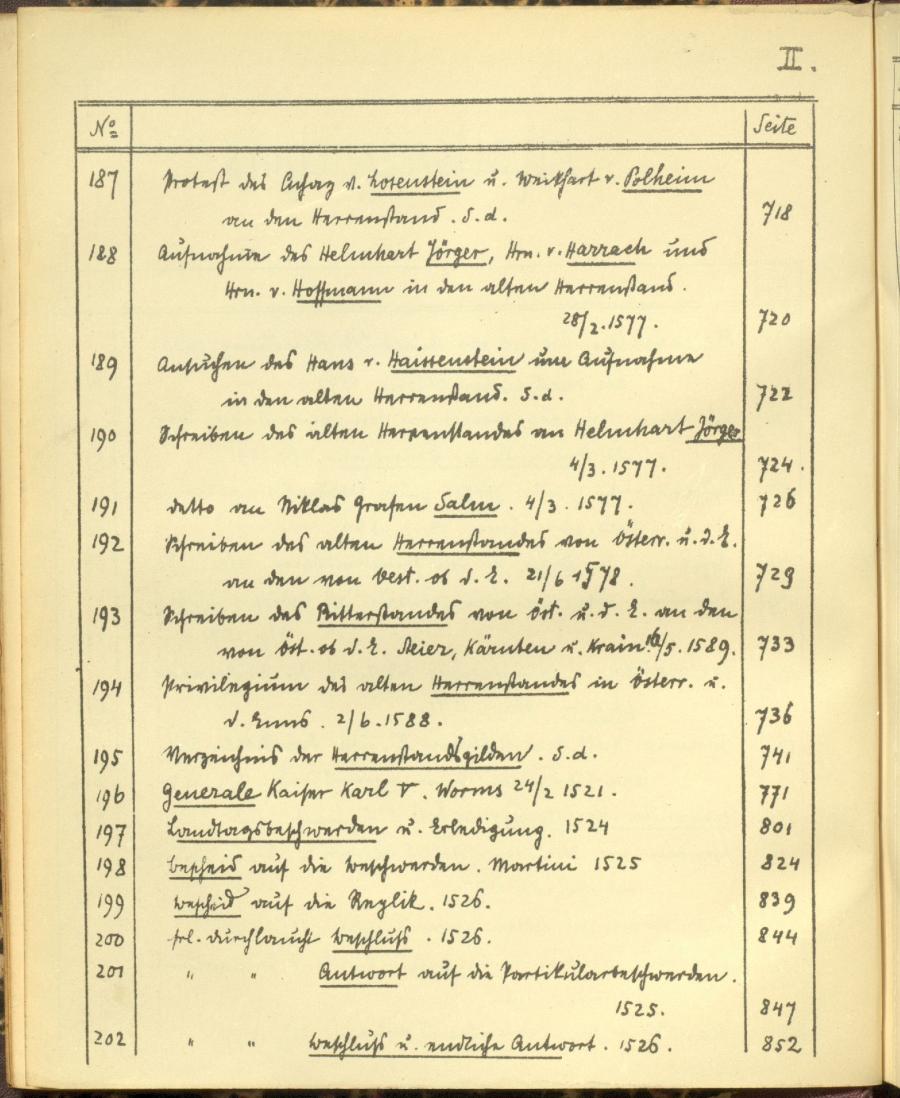 II.
No Seite
187 Protest des Achaz v. Losenstein u. Weikhart v. Polheim
an den Herrenstand. S. d. 718
188 Aufnahme des Helmhart Jörger, Hrn. v. Harrach und
Hrn. v. Hoffmann in den alten Herrenstand.
28/2. 1577. 720
189 Ansuchen des Hans v. Haissenstein um Aufnahme
in den alten Herrenstand. S. d. 722
190 Schreiben des alten Herrenstandes an Helmhart Jörger
4/3. 1577. 724.
191 detto an Niklas Grafen Salm. 4/3. 1577. 726
192 Schreiben des alten Herrenstandes von Österr. u. d. E.
an den von Oest. ob d. E. 21/6 1578. 729
193 Schreiben des Ritterstandes von Öst. u. d. E. an den
von Öst. ob d. E. Steier, Kärnten u. Krain. 16/5. 1589. 733
194 Privilegium des alten Herrenstandes in Österr. u.
d. Enns. 2/6. 1588. 736
195 Verzeichnis der Herrenstandsgilden. S. d. 741
196 Generale Kaiser Karl V. Worms 24/2 1521. 771
197 Landtagsbeschwerden u. Erledigung. 1524 801
198 Bescheid auf die Beschwerden. Martini 1525 824
199 Bescheid auf die Replik. 1526. 839
200 frl. durchlaucht Beschluss. 1526. 844
201 " " Antwort auf die Partikularbeschwerden.
1525. 847
202 " " Beschluss u. endliche Antwort. 1526. 852